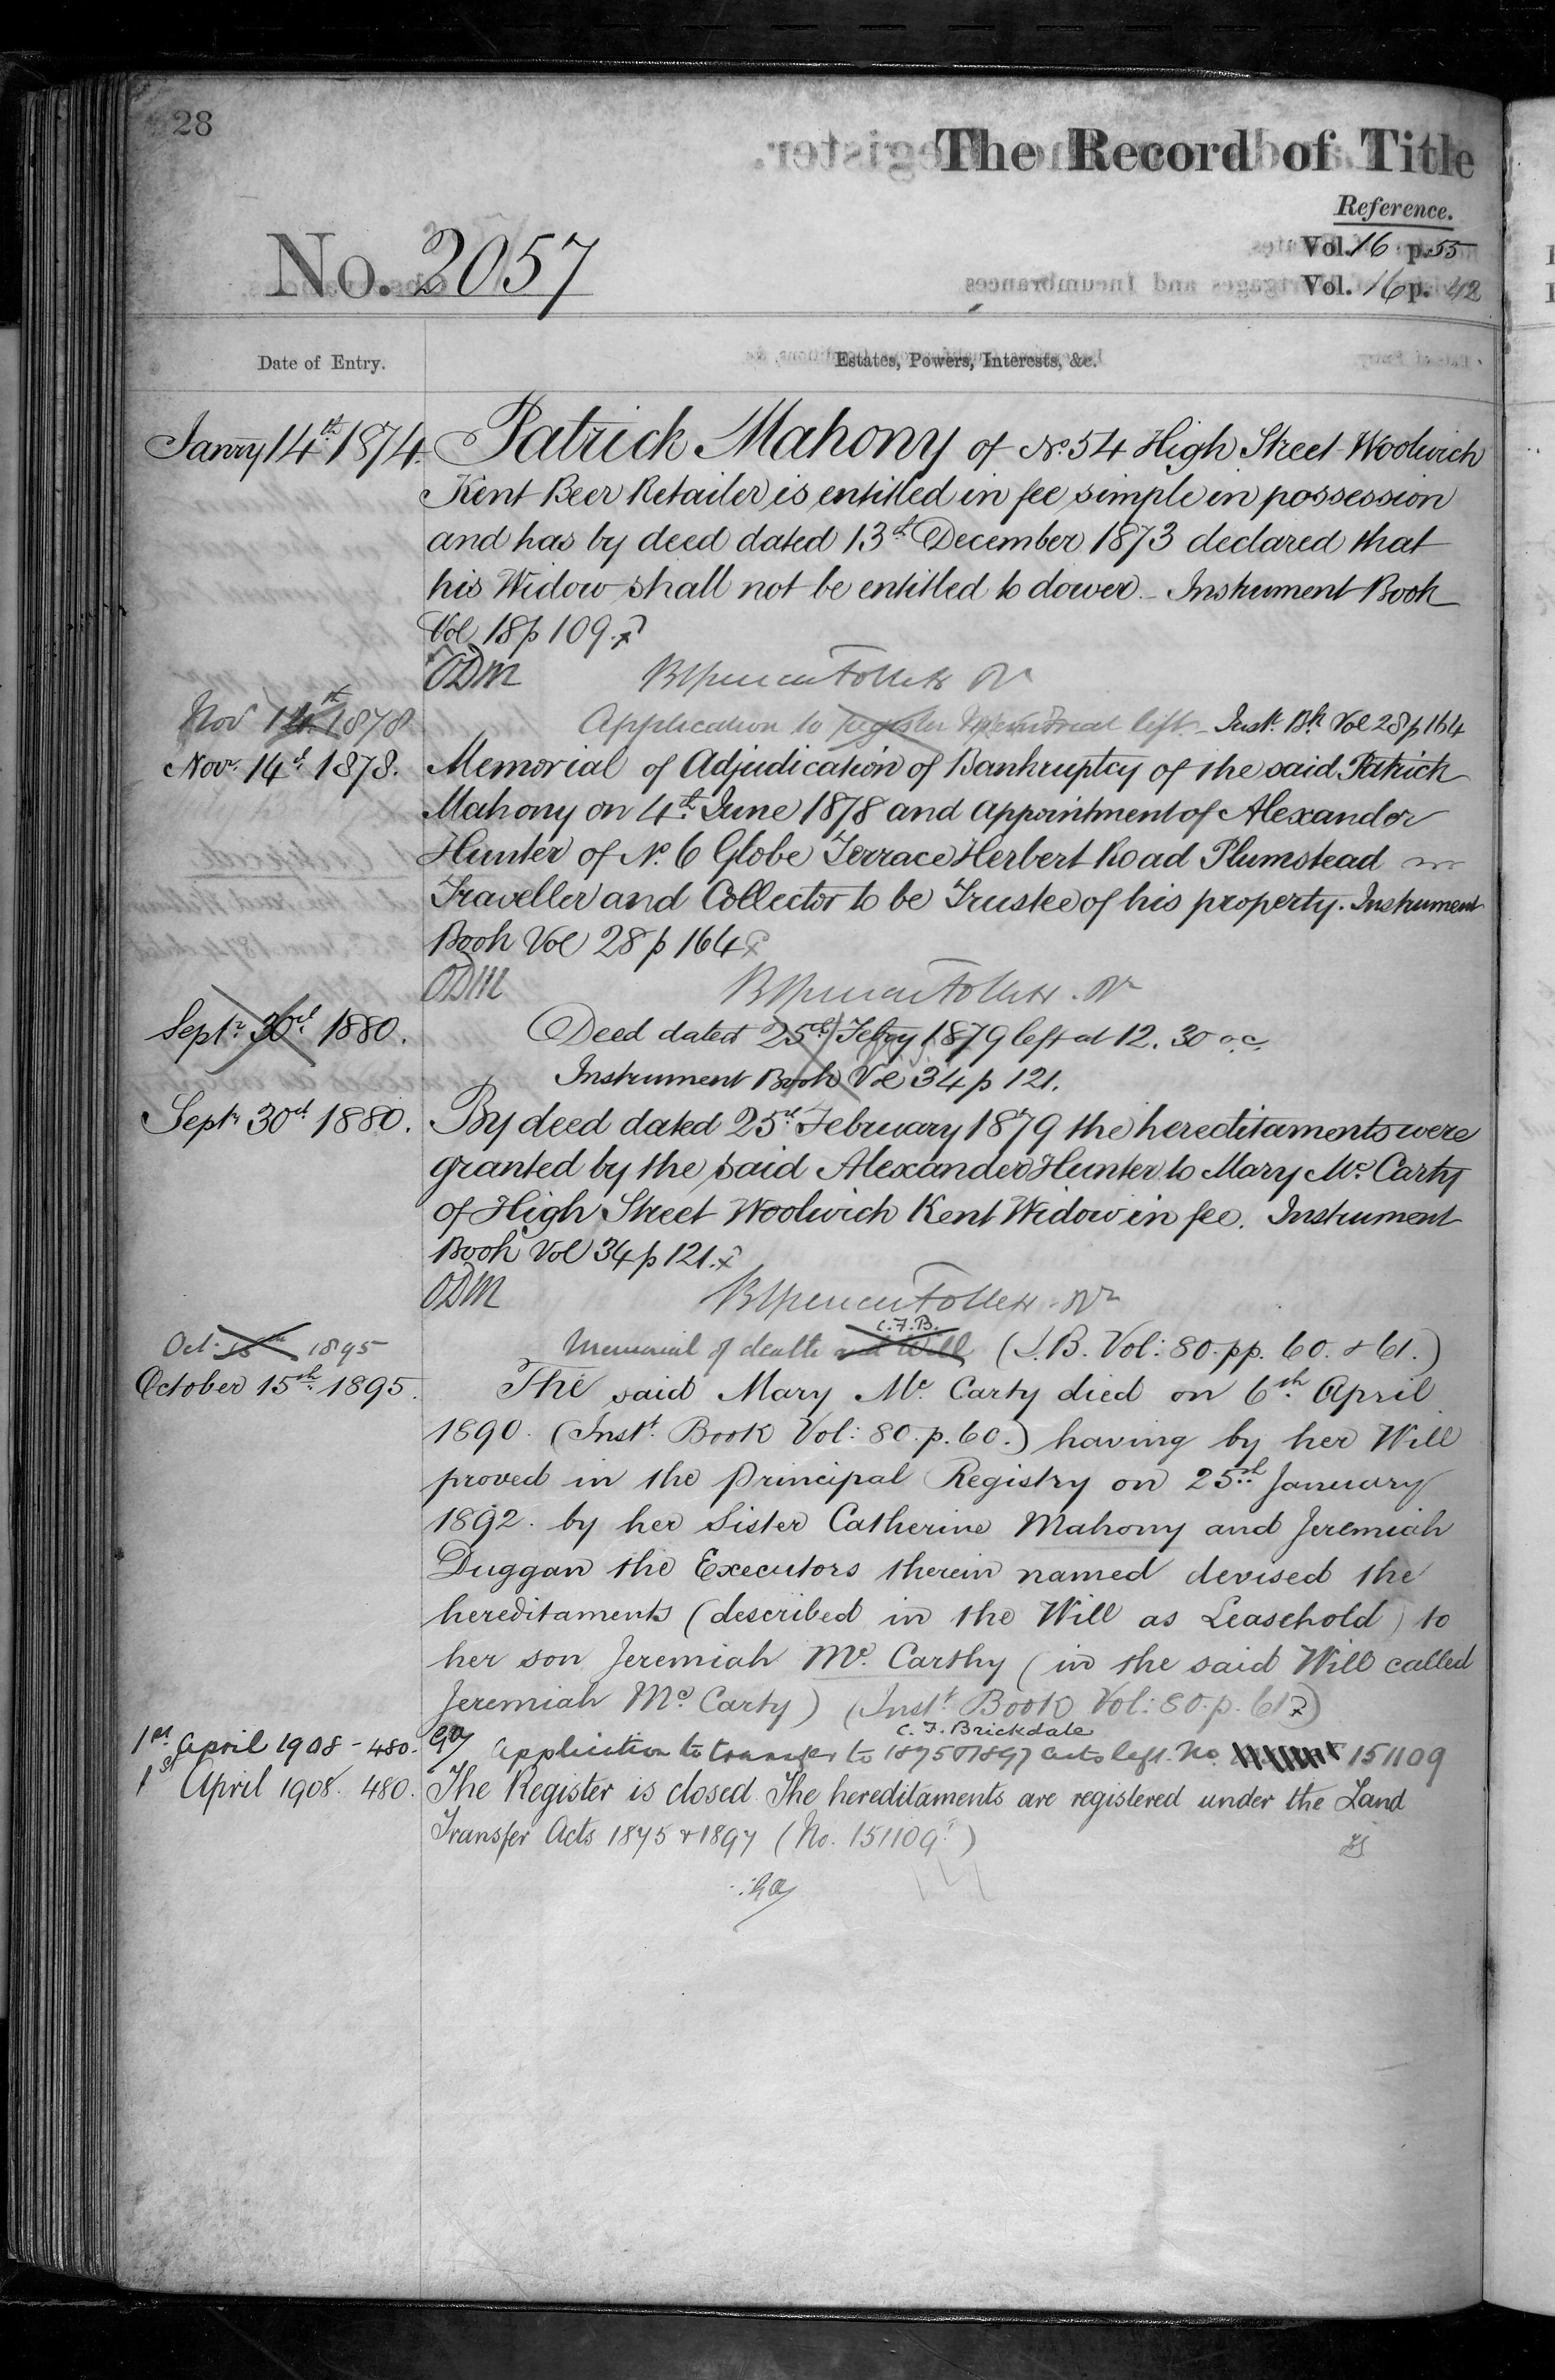 28
The Record of Title
Reference.
No. 2057
Vol. 16 p. 55
Vol. 16 p. 42
Date of Entry.
Estates, Powers, Interests, &c.
Janry 14th 1874. Patrick Mahony of No. 54 High Street Woolwich
Kent Beer Retailer is entitled in fee simple in possession
and has by deed dated 13th December 1873 declared that
his Widow shall not be entitled to dower. Instrument Book
Vol 18 p 109.
ODM
Nov 14th 1878 Application to register Memorial left. Inst. Bk Vol 28 p 164
Novr 14th 1878. Memorial of Adjudication of Bankruptcy of the said Patrick
Mahony on 4th June 1878 and appointment of Alexander
Hunter of No. 6 Globe Terrace Herbert Road Plumstead
Traveller and Collector to be Trustee of his property. Instrument
Book Vol 28 p 164
ODM
Septr 30th 1880. Deed dated 25th Febry 1879 left at 12.30 o.c.
Instrument Book Vol 34 p 121.
Septr 30th 1880. By deed dated 25th February 1879 the hereditaments were
granted by the said Alexander Hunter to Mary Mc Carty
of High Street Woolwich Kent Widow in fee. Instrument
Book Vol 34 p 121.
ODM
C.F.B.
Oct. 15th 1895 Memorial of death and Will (I.B. Vol: 80. pp. 60. & 61.)
October 15th 1895. The said Mary Mc Carty died on 6th April
1890. (Instt. Book Vol: 80. p. 60.) having by her Will
proved in the Principal Registry on 25th January
1892. by her Sister Catherine Mahony and Jeremiah
Duggan the Executors therein named devised the
hereditaments (described in the Will as Leasehold) to
her son Jeremiah Mc. Carthy (in the said Will called
Jeremiah Mc Carty) (Instt. Book Vol: 80. p. 61)
C. F. Brickdale
1st April 1908 - 480. Application to transfer to 1875 & 1897 acts left. No. 151109
1st April 1908. 480. The Register is closed. The hereditaments are registered under the Land
Transfer Acts 1875 & 1897 (No. 151109)